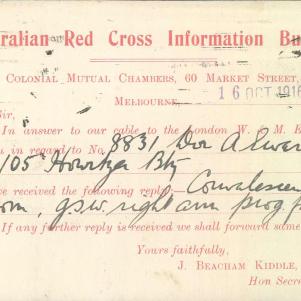 ralian Red Cross Information Bu
Colonial Mutual Chambers, 60 Market Street,
16 OCT 1916
Melbourne,
Sir,
In answer to our cable to the London W. & M. B
in regard to No. 8831 Dvr A.
105 Howitzer Bty
ve received the following reply:— Convalescen
gsw right arm prog f
If any further reply is received we shall forward same
Yours faithfully,
J. BEACHAM KIDDLE,
Hon Secre